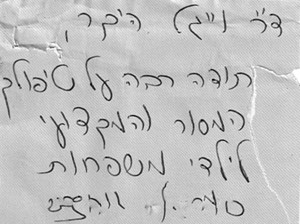 ד"ר וייגל היקר,
תודה רבה על טיפולך
המסור והמקצועי
לילדי משפחות